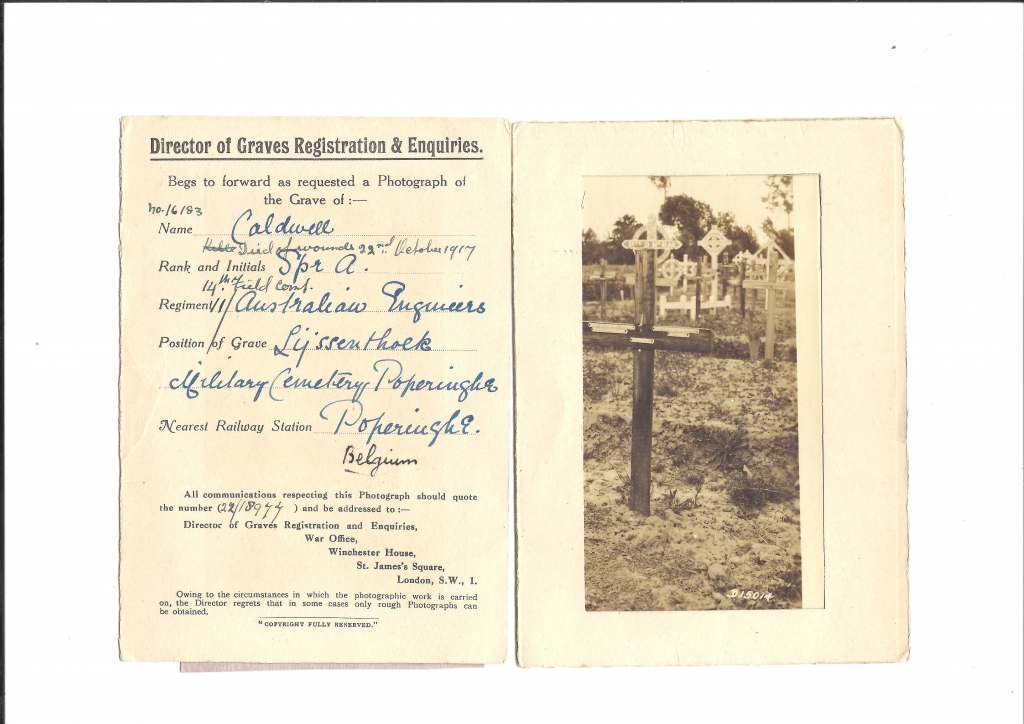 Director of Graves Registration & Enquiries.
Begs to forward as requested a Photograph of
the Grave of :—
No. 16183
Name Caldwell
Died of wounds 22nd October 1917
Rank and Initials Spr A.
14th Field Comp.
Regiment Australian Engineers
Position of Grave Lijssenthoek
Military Cemetery Poperinghe
Nearest Railway Station Poperinghe.
Belgium
All communications respecting this Photograph should quote
the number (22/18977 ) and be addressed to :—
Director of Graves Registration and Enquiries,
War Office,
Winchester House,
St. James's Square,
London, S.W., 1.
Owing to the circumstances in which the photographic work is carried
on, the Director regrets that in some cases only rough Photographs can
be obtained.
"COPYRIGHT FULLY RESERVED."
D15014